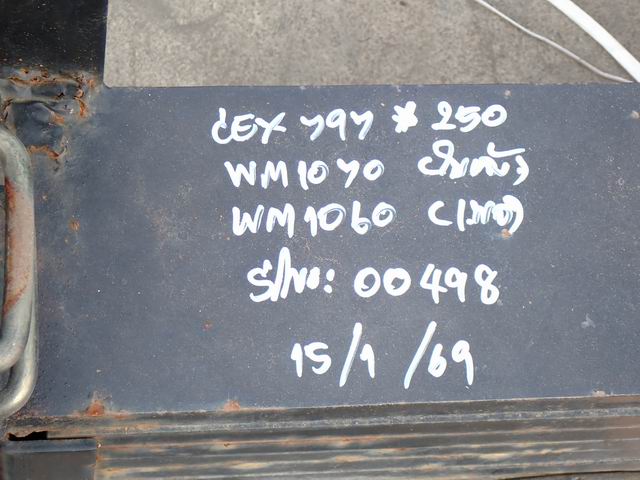 CEX 797 * 250
WM1070 (ใบตัว)
WM1060 (เพลา)
S/No: 00498
15/1/69